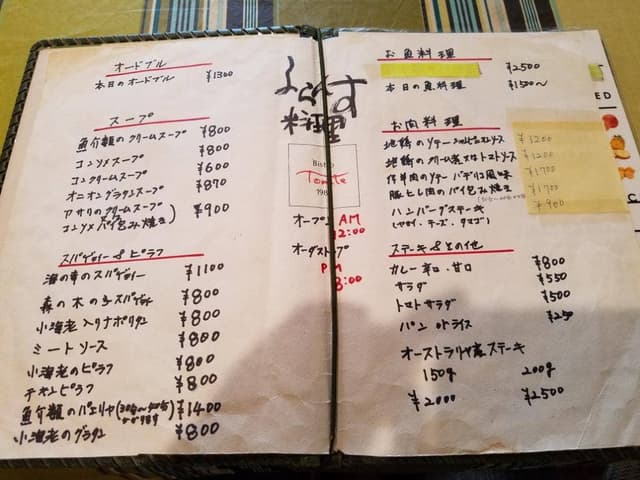 オードブル
本日のオードブル ¥1300
スープ
魚介類のクリームスープ ¥800
コンソメスープ ¥800
コーンクリームスープ ¥600
オニオングラタンスープ ¥870
アサリのクリームスープ
コンソメパイ包み焼き) ¥900
スパゲティー&ピラフ
海の幸のスパゲティー ¥1100
森の木の子スパゲティ ¥800
小海老入りナポリタン ¥800
ミートソース ¥800
小海老のピラフ ¥800
チキンピラフ ¥800
魚介類のパエリヤ(30分〜40分 ¥1400
小海老のグラタン ¥800
ふらんす
料理
Bistro
Tomate
198
オープン AM
12:00
オーダストップ
PM
8:00
お魚料理
¥2500
本日の魚料理 ¥1500〜
お肉料理
地鶏のソテー ¥1200
地鶏のクリーム煮又はトマトソース ¥1200
仔羊肉のソテー バヂリコ風味 ¥1700
豚ヒレ肉のパイ包み焼き ¥1700
ハンバーグステーキ ¥900
(ヤサイ・チーズ・タマゴ)
ステーキ&その他
カレー辛口・甘口 ¥800
サラダ ¥550
トマトサラダ ¥500
パン orライス ¥250
オーストラリヤ産ステーキ
150g 200g
¥2000 ¥2500
ED